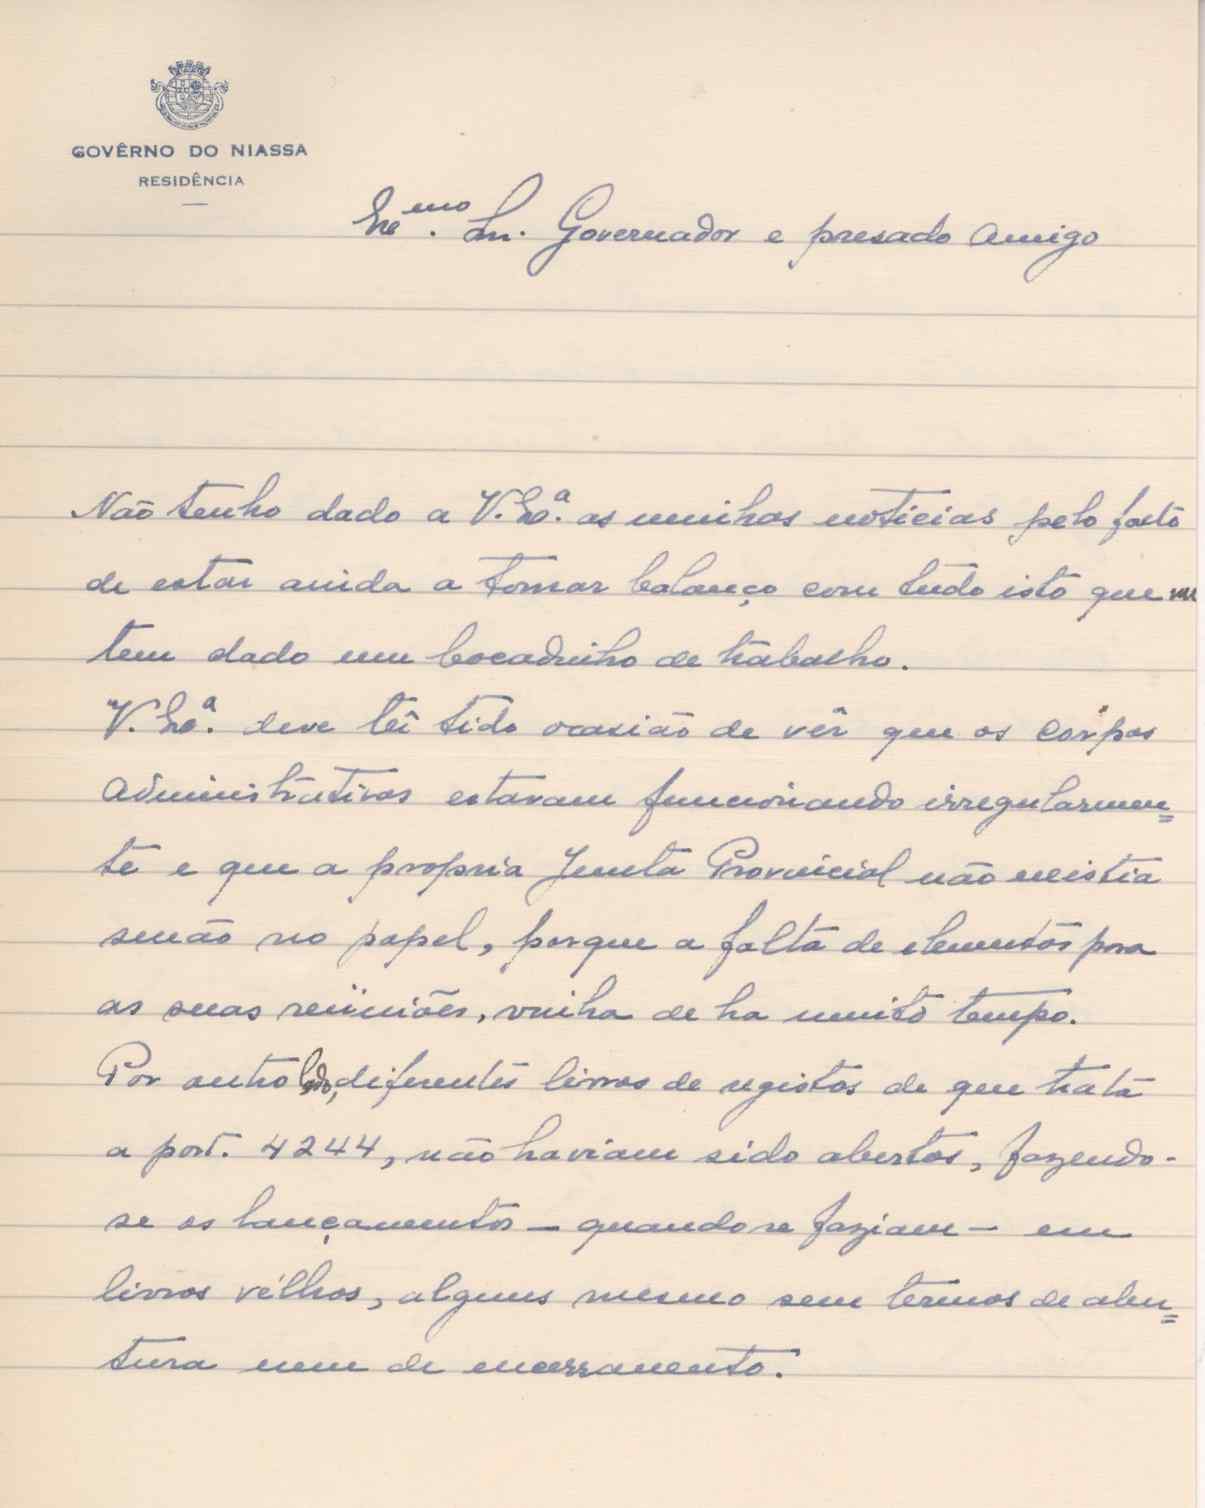 GOVÊRNO DO NIASSA
RESIDÊNCIA
Exᵐᵒ. Sn. Governador e presado Amigo
Não tenho dado a V. Exª. as minhas noticias pelo facto
de estar ainda a tomar balanço com tudo isto que me
tem dado um bocadinho de trabalho.
V. Exª. deve têr tido ocasião de vêr que os corpos
administrativos estavam funcionando irregularmen=
te e que a propria Junta Provincial não existia
senão no papel, porque a falta de elementos para
as suas reüniões, vinha de ha muito tempo.
Por outro lado, diferentes livros de registos de que trata
a port. 4244, não haviam sido abertos, fazendo-
se os lançamentos — quando se faziam — em
livros velhos, alguns mesmo sem termos de aber=
tura nem de encerramento.